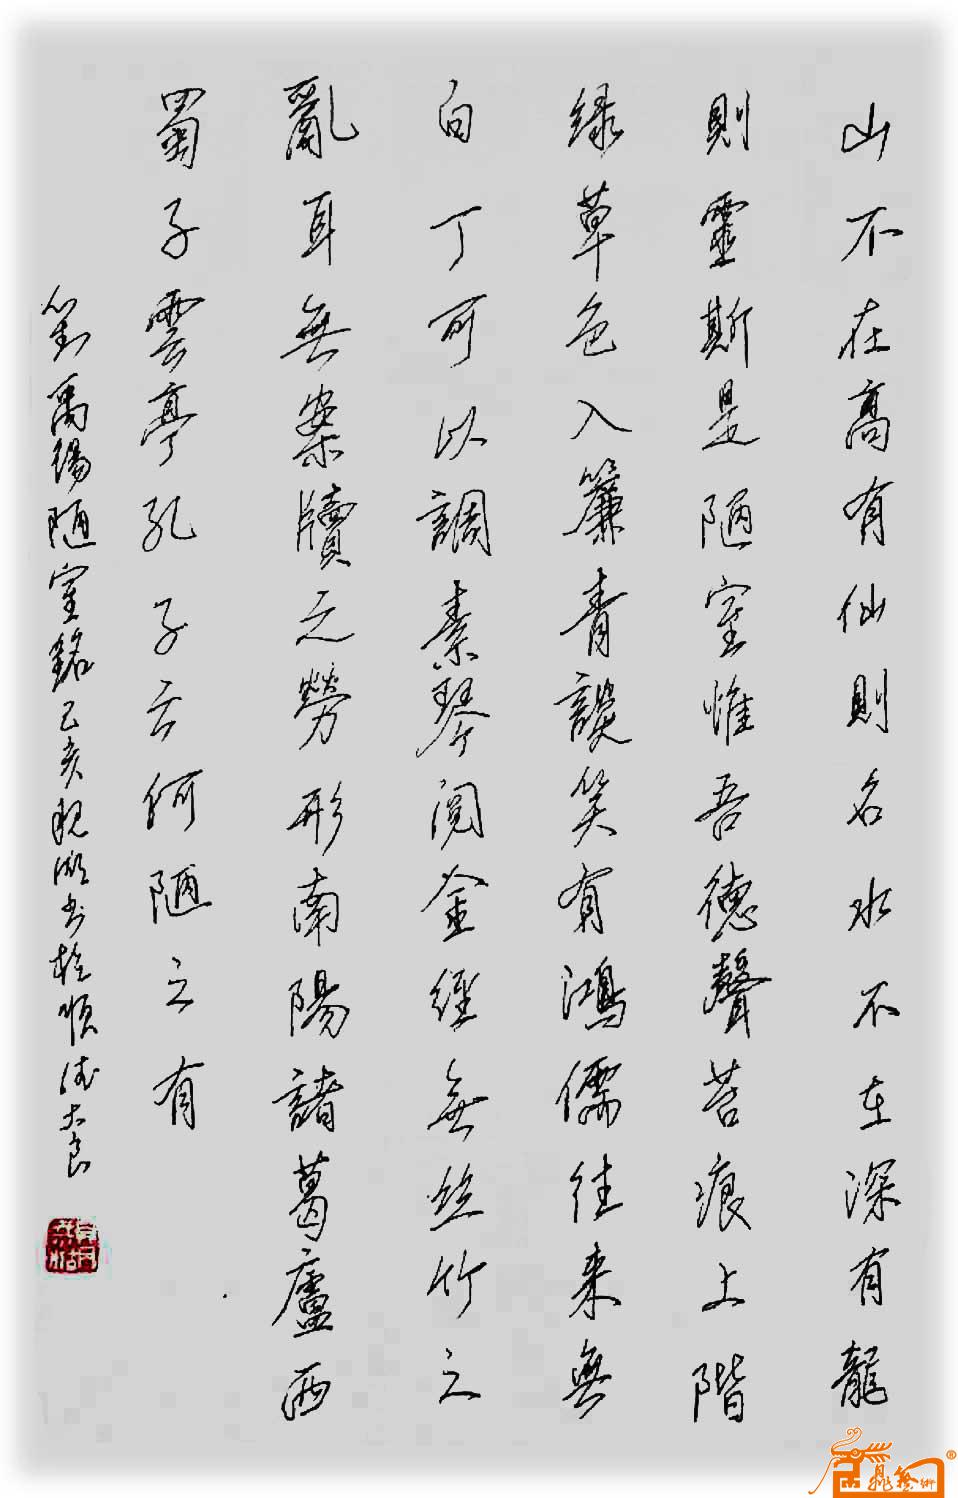 山不在高有仙則名水不在深有龍
則靈斯是陋室惟吾德聲苔痕上階
绿草色入簾青談笑有鴻儒往来無
白丁可以調素琴阅金經無丝竹之
亂耳無案牘之勞形南陽諸葛廬西
蜀子雲亭孔子云何陋之有
劉禹锡陋室銘乙亥秋 书於順德大良